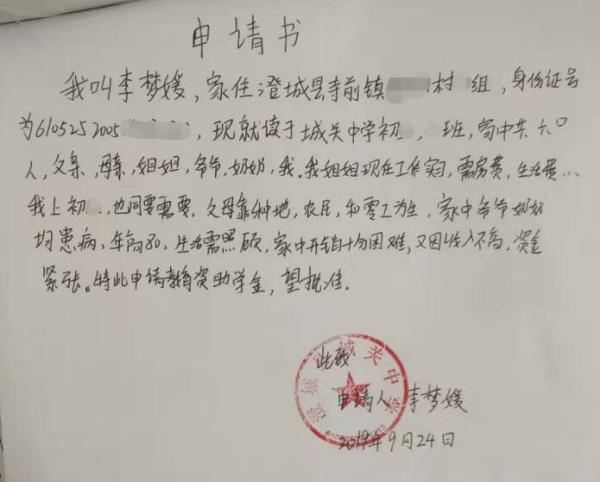 申请书
我叫李梦媛，家住澄城县寺前镇 村 组，身份证号
为610525 2005 ，现就读于城关中学初 ， 班，家中共六口
人，父亲，母亲，姐姐，爷爷，奶奶，我。我姐姐现在工作实习，需房费，生活费…
我上初 ，也同要需要，父母靠种地，农民，和零工为生，家中爷爷奶奶
均患病、年高80，生活需照顾，家中开销十分困难，又因收入不高，资金
紧张。特此申请教育资助学金，望批准。
此致
申请人 李梦媛
2019年9月24日
澄城县城关中学